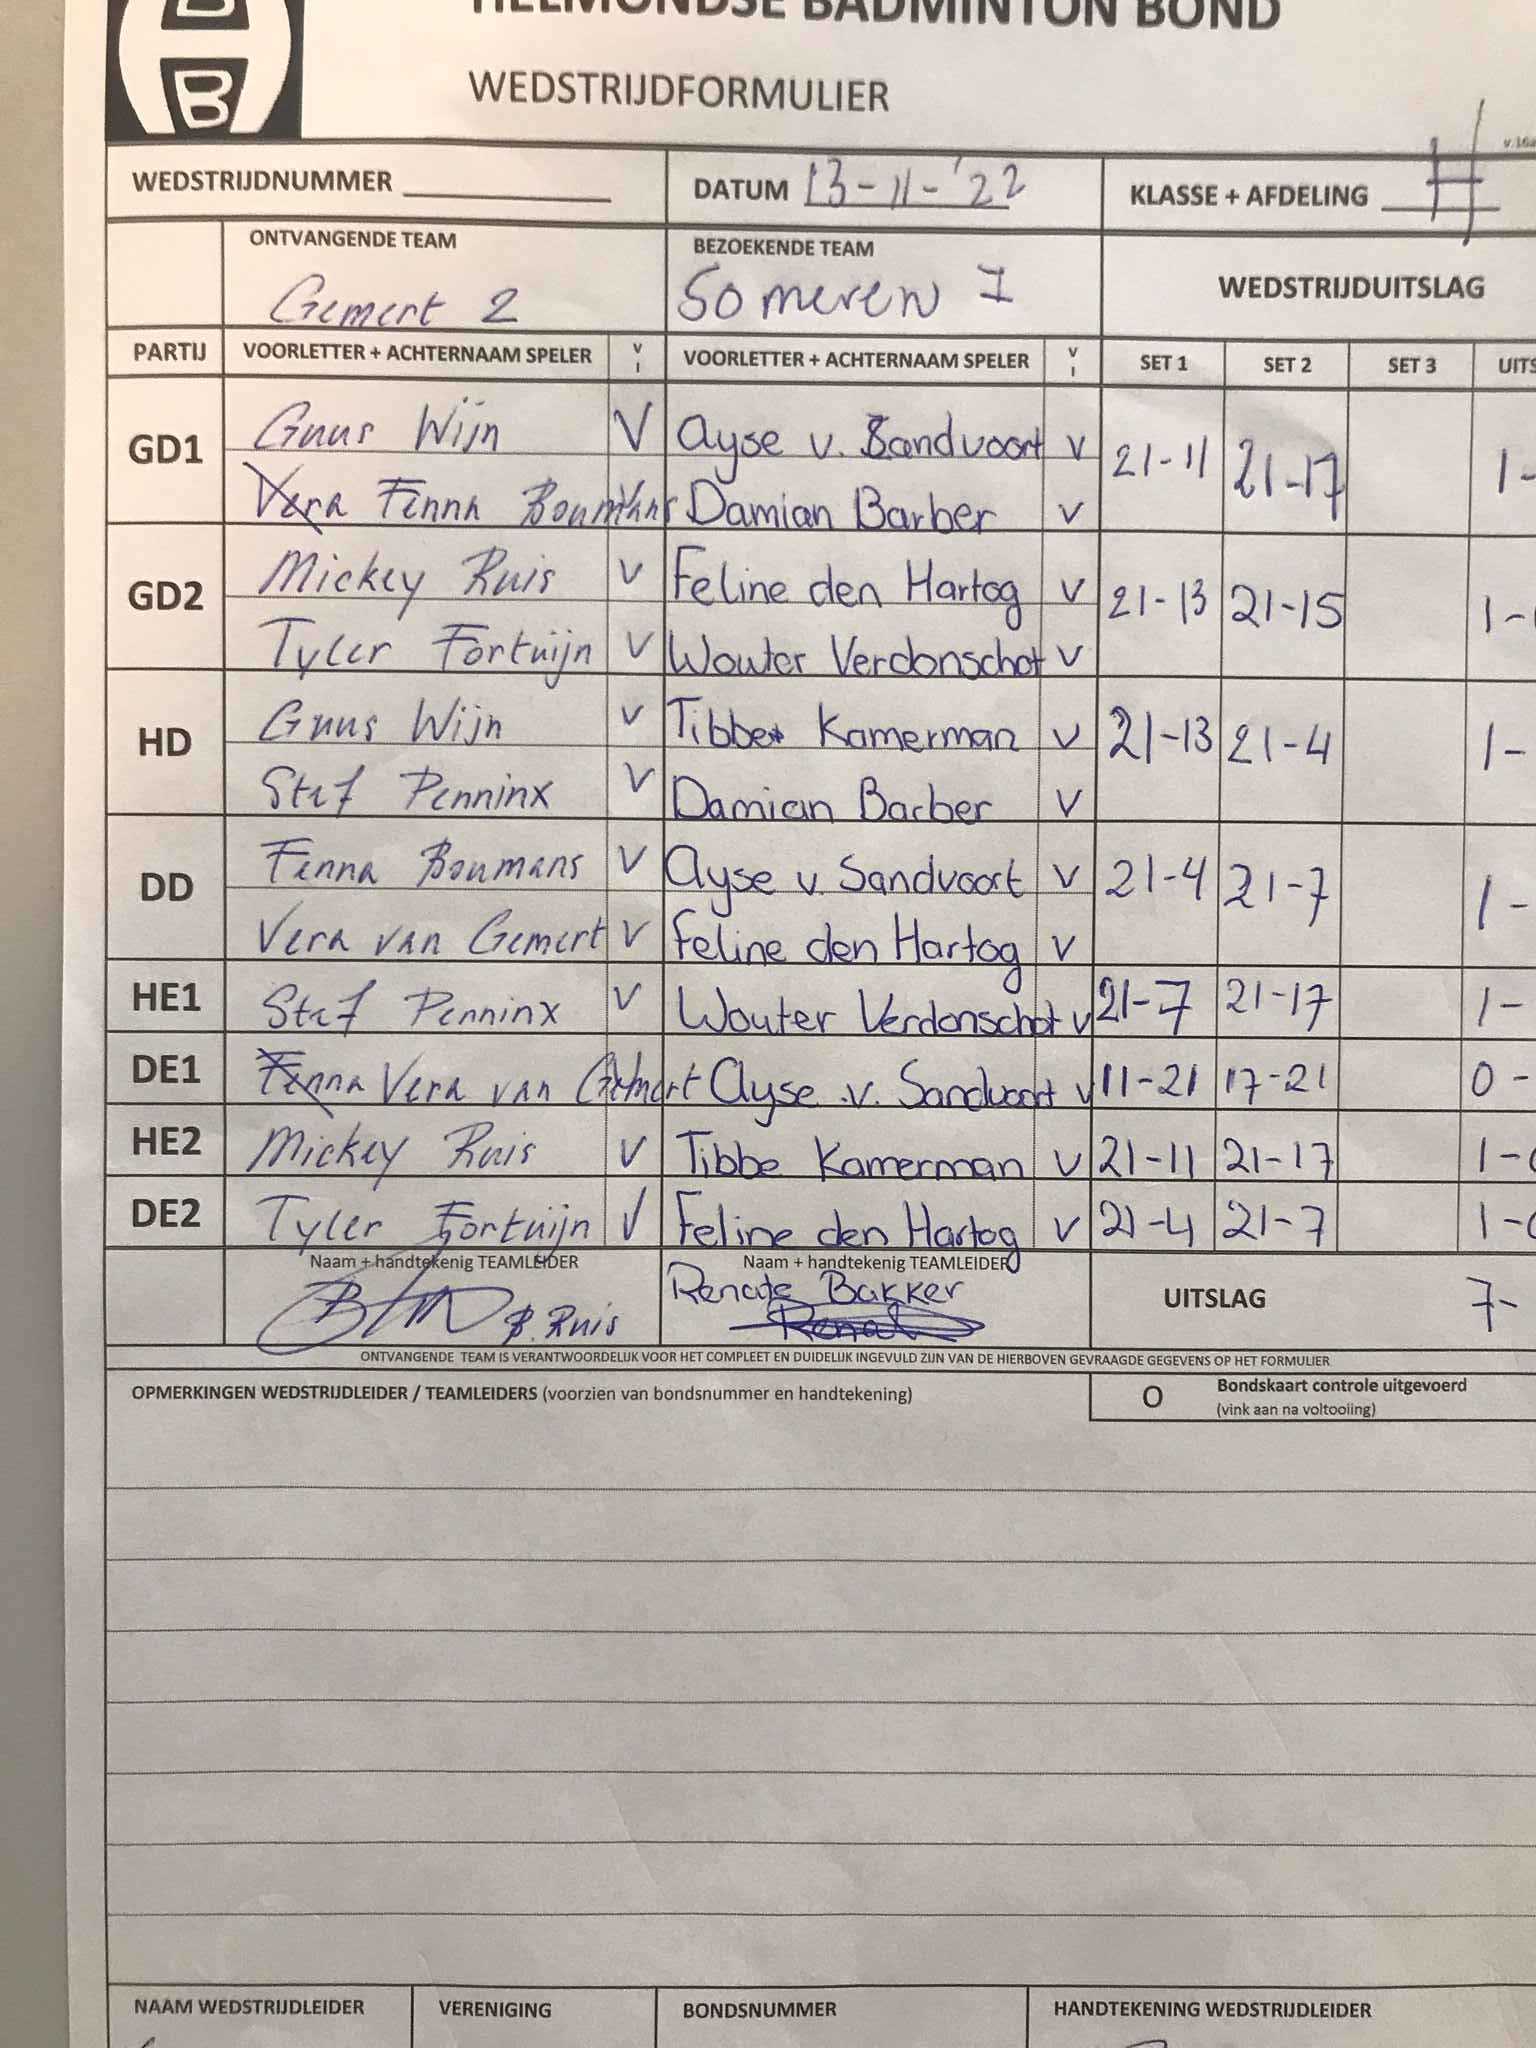 HELMONDSE BADMINTON BOND
WEDSTRIJDFORMULIER
WEDSTRIJDNUMMER DATUM 13-11-'22 KLASSE + AFDELING
ONTVANGENDE TEAM BEZOEKENDE TEAM
Gemert 2 Someren 1 WEDSTRIJDUITSLAG
PARTIJ VOORLETTER + ACHTERNAAM SPELER V I VOORLETTER + ACHTERNAAM SPELER V I SET 1 SET 2 SET 3 UITS
GD1 Guus Wijn V Ayse v. Sandvoort V 21-11 21-17 1-
Vera Fenna Boumans Damian Barber V
GD2 Mickey Ruis V Feline den Hartog V 21-13 21-15 1-
Tyler Fortuijn V Wouter Verdonschot V
HD Guus Wijn V Tibbe Kamerman V 21-13 21-4 1-
Stef Penninx V Damian Barber V
DD Fenna Boumans V Ayse v. Sandvoort V 21-4 21-7 1-
Vera van Gemert V Feline den Hartog V
HE1 Stef Penninx V Wouter Verdonschot V 21-7 21-17 1-
DE1 Fenna Vera van Gemert Ayse v. Sandvoort V 11-21 17-21 0-
HE2 Mickey Ruis V Tibbe Kamerman V 21-11 21-17 1-
DE2 Tyler Fortuijn V Feline den Hartog V 21-4 21-7 1-
Naam + handtekenig TEAMLEIDER Naam + handtekenig TEAMLEIDER
B. Ruis Renate Bakker UITSLAG 7-
ONTVANGENDE TEAM IS VERANTWOORDELIJK VOOR HET COMPLEET EN DUIDELIJK INGEVULD ZIJN VAN DE HIERBOVEN GEVRAAGDE GEGEVENS OP HET FORMULIER
OPMERKINGEN WEDSTRIJDLEIDER / TEAMLEIDERS (voorzien van bondsnummer en handtekening) O Bondskaart controle uitgevoerd
(vink aan na voltooiing)
NAAM WEDSTRIJDLEIDER VERENIGING BONDSNUMMER HANDTEKENING WEDSTRIJDLEIDER